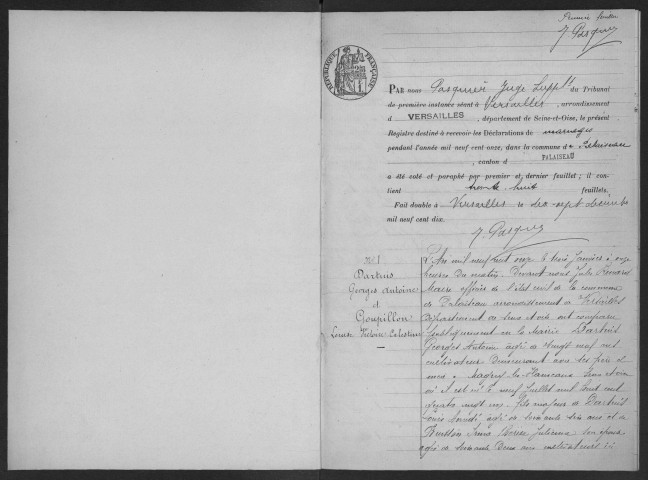 Premier feuillet
J. Pasquier
RÉPUBLIQUE FRANÇAISE
PAR nous Pasquier Juge Suppt. du Tribunal
de première instance séant à Versailles, arrondissement
d VERSAILLES, département de Seine-et-Oise, le présent
Registre destiné à recevoir les Déclarations de mariages
pendant l'année mil neuf cent onze, dans la commune de Palaiseau
, canton d PALAISEAU
a été coté et paraphé par premier et dernier feuillet; il con-
tient trente huit feuillets.
Fait double à Versailles le dix sept décembre
mil neuf cent dix.
J. Pasquier
No 1
Georges Antoine
et
Goupillon
Louise Victoire Célestine
L'An mil neuf cent onze le trois Janvier à onze
heures du matin Devant nous Jules
Maire officier de l'état civil de la commune
de Palaiseau arrondissement de Versailles
Département de Seine et Oise ont comparu
publiquement en la Mairie
Georges Antoine âgé de vingt neuf ans
cultivateur demeurant avec ses père et
mère à Magny-les-Hameaux Seine et Oise
où il est né le neuf Juillet mil huit cent
quatre vingt un. Fils majeur de
âgé de soixante six ans et de
son épouse
âgée de soixante deux ans cultivateurs